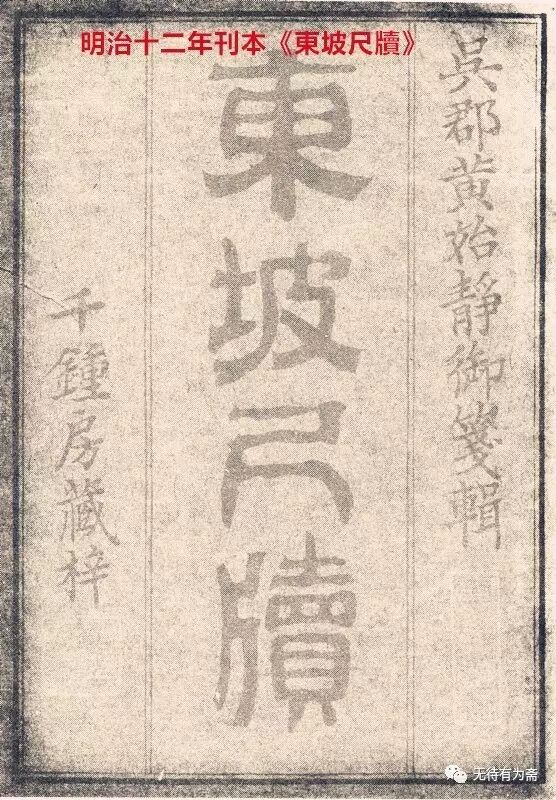 明治十二年刊本《東坡尺牘》
吳郡黄始靜御箋輯
東坡尺牘
千鍾房藏梓
无待有为斋